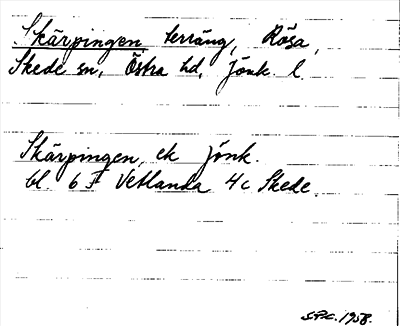 Skärpingen, terräng, Rösa,
Skede sn, Östra hd, Jönk. l.
Skärpingen, ek Jönk.
bl. 6 F Vetlanda 4c Skede.
1958.